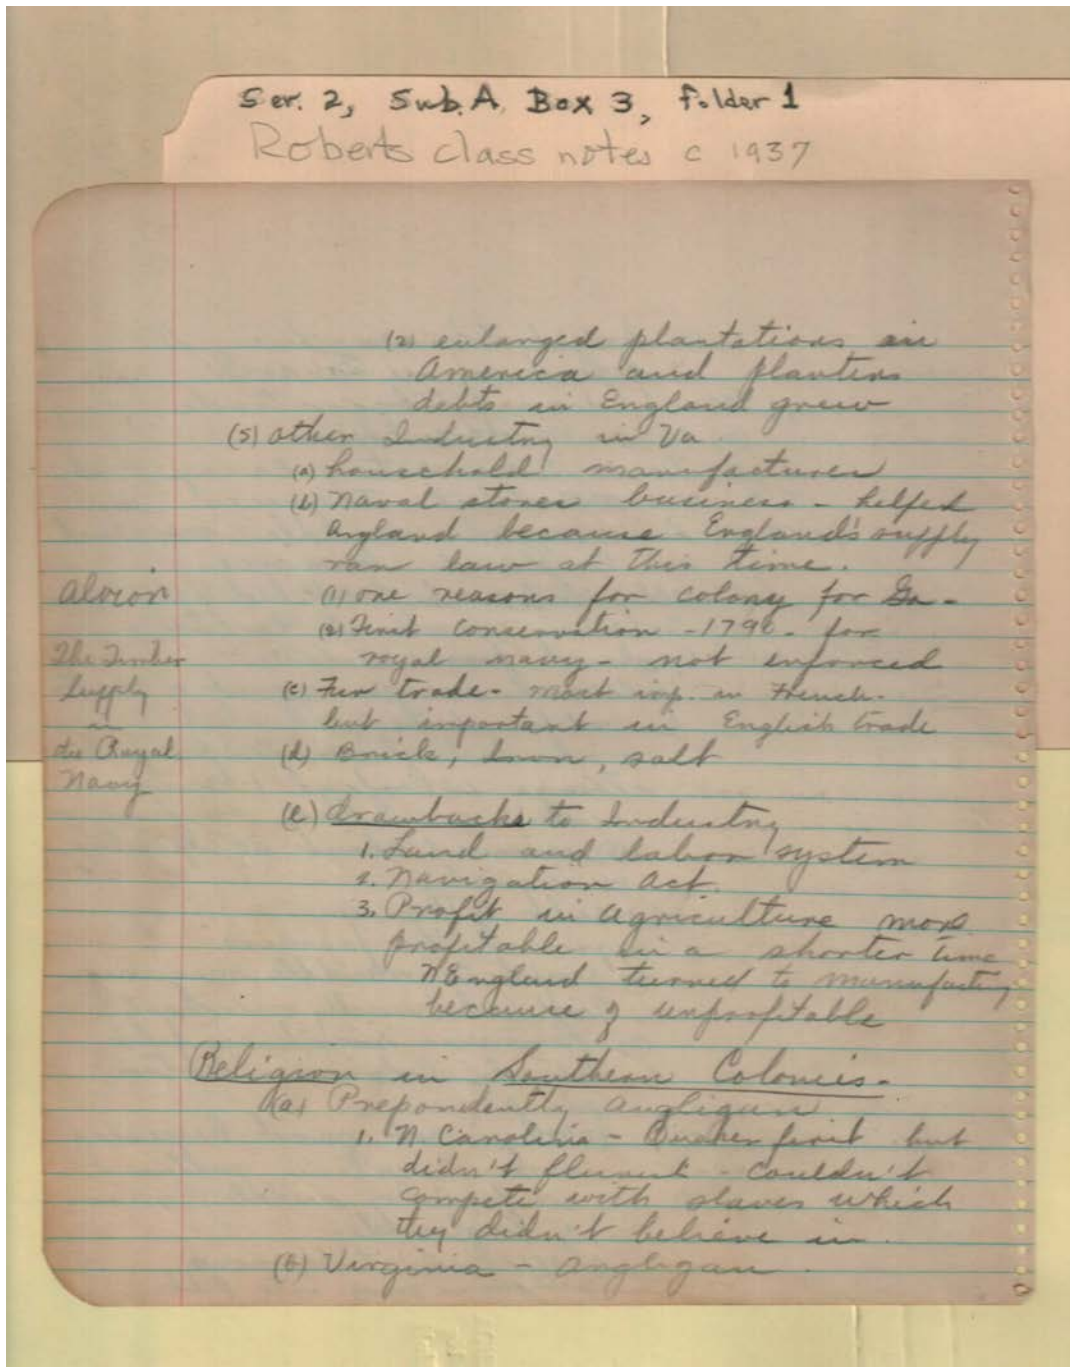 Ser. 2, Sub. A, Box 3, Folder 1
Roberts class notes c 1937
(2) enlarged plantations in
America and planters
debts in England grew
(5) other Industry in Va
(a) household manufactures
(b) Naval stores business - helped
England because England's supply
ran low at this time.
(1) one reasons for colony for Ga -
(2) First Conservation - 1790 - for
royal navy - not enforced
(c) Fur trade - most imp. in French -
but important in English trade
(d) Brick, Iron, salt
Albion
The Timber
Supply
in
the Royal
Navy
(e) drawbacks to Industry
1. Land and labor system
2. Navigation Act.
3. Profit in agriculture more
profitable in a shorter time
N England turned to manufacturing
because of unprofitable
Religion in Southern Colonies -
(a) Prepondently Angligan
1. N. Carolina - Quaker first but
didn't - couldn't
compete with slaves which
they didn't believe in.
(b) Virginia - Angligan